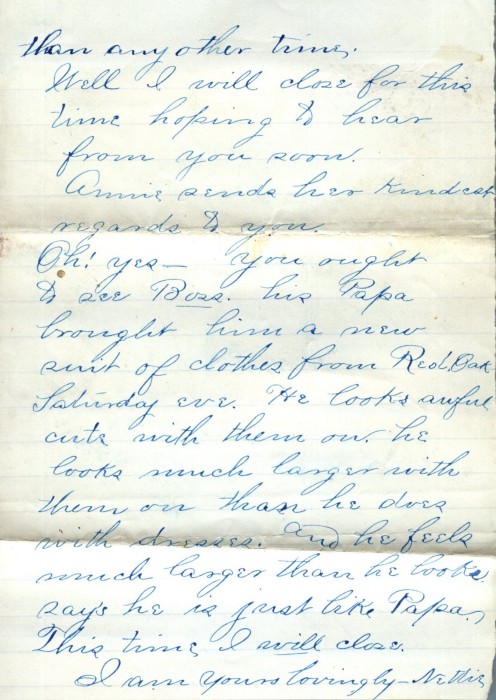 than any other time.
Well I will close for this
time hoping to hear
from you soon.
Annie sends her kindest
regards to you.
Oh! yes— you ought
to see Boss. his Papa
brought him a new
suit of clothes from Red Oak
Saturday eve. He looks awful
cute with them on. he
looks much larger with
them on than he does
with dresses. and he feels
much larger than he looks.
says he is just like Papa.
This time I will close.
I am yours lovingly—Nettie